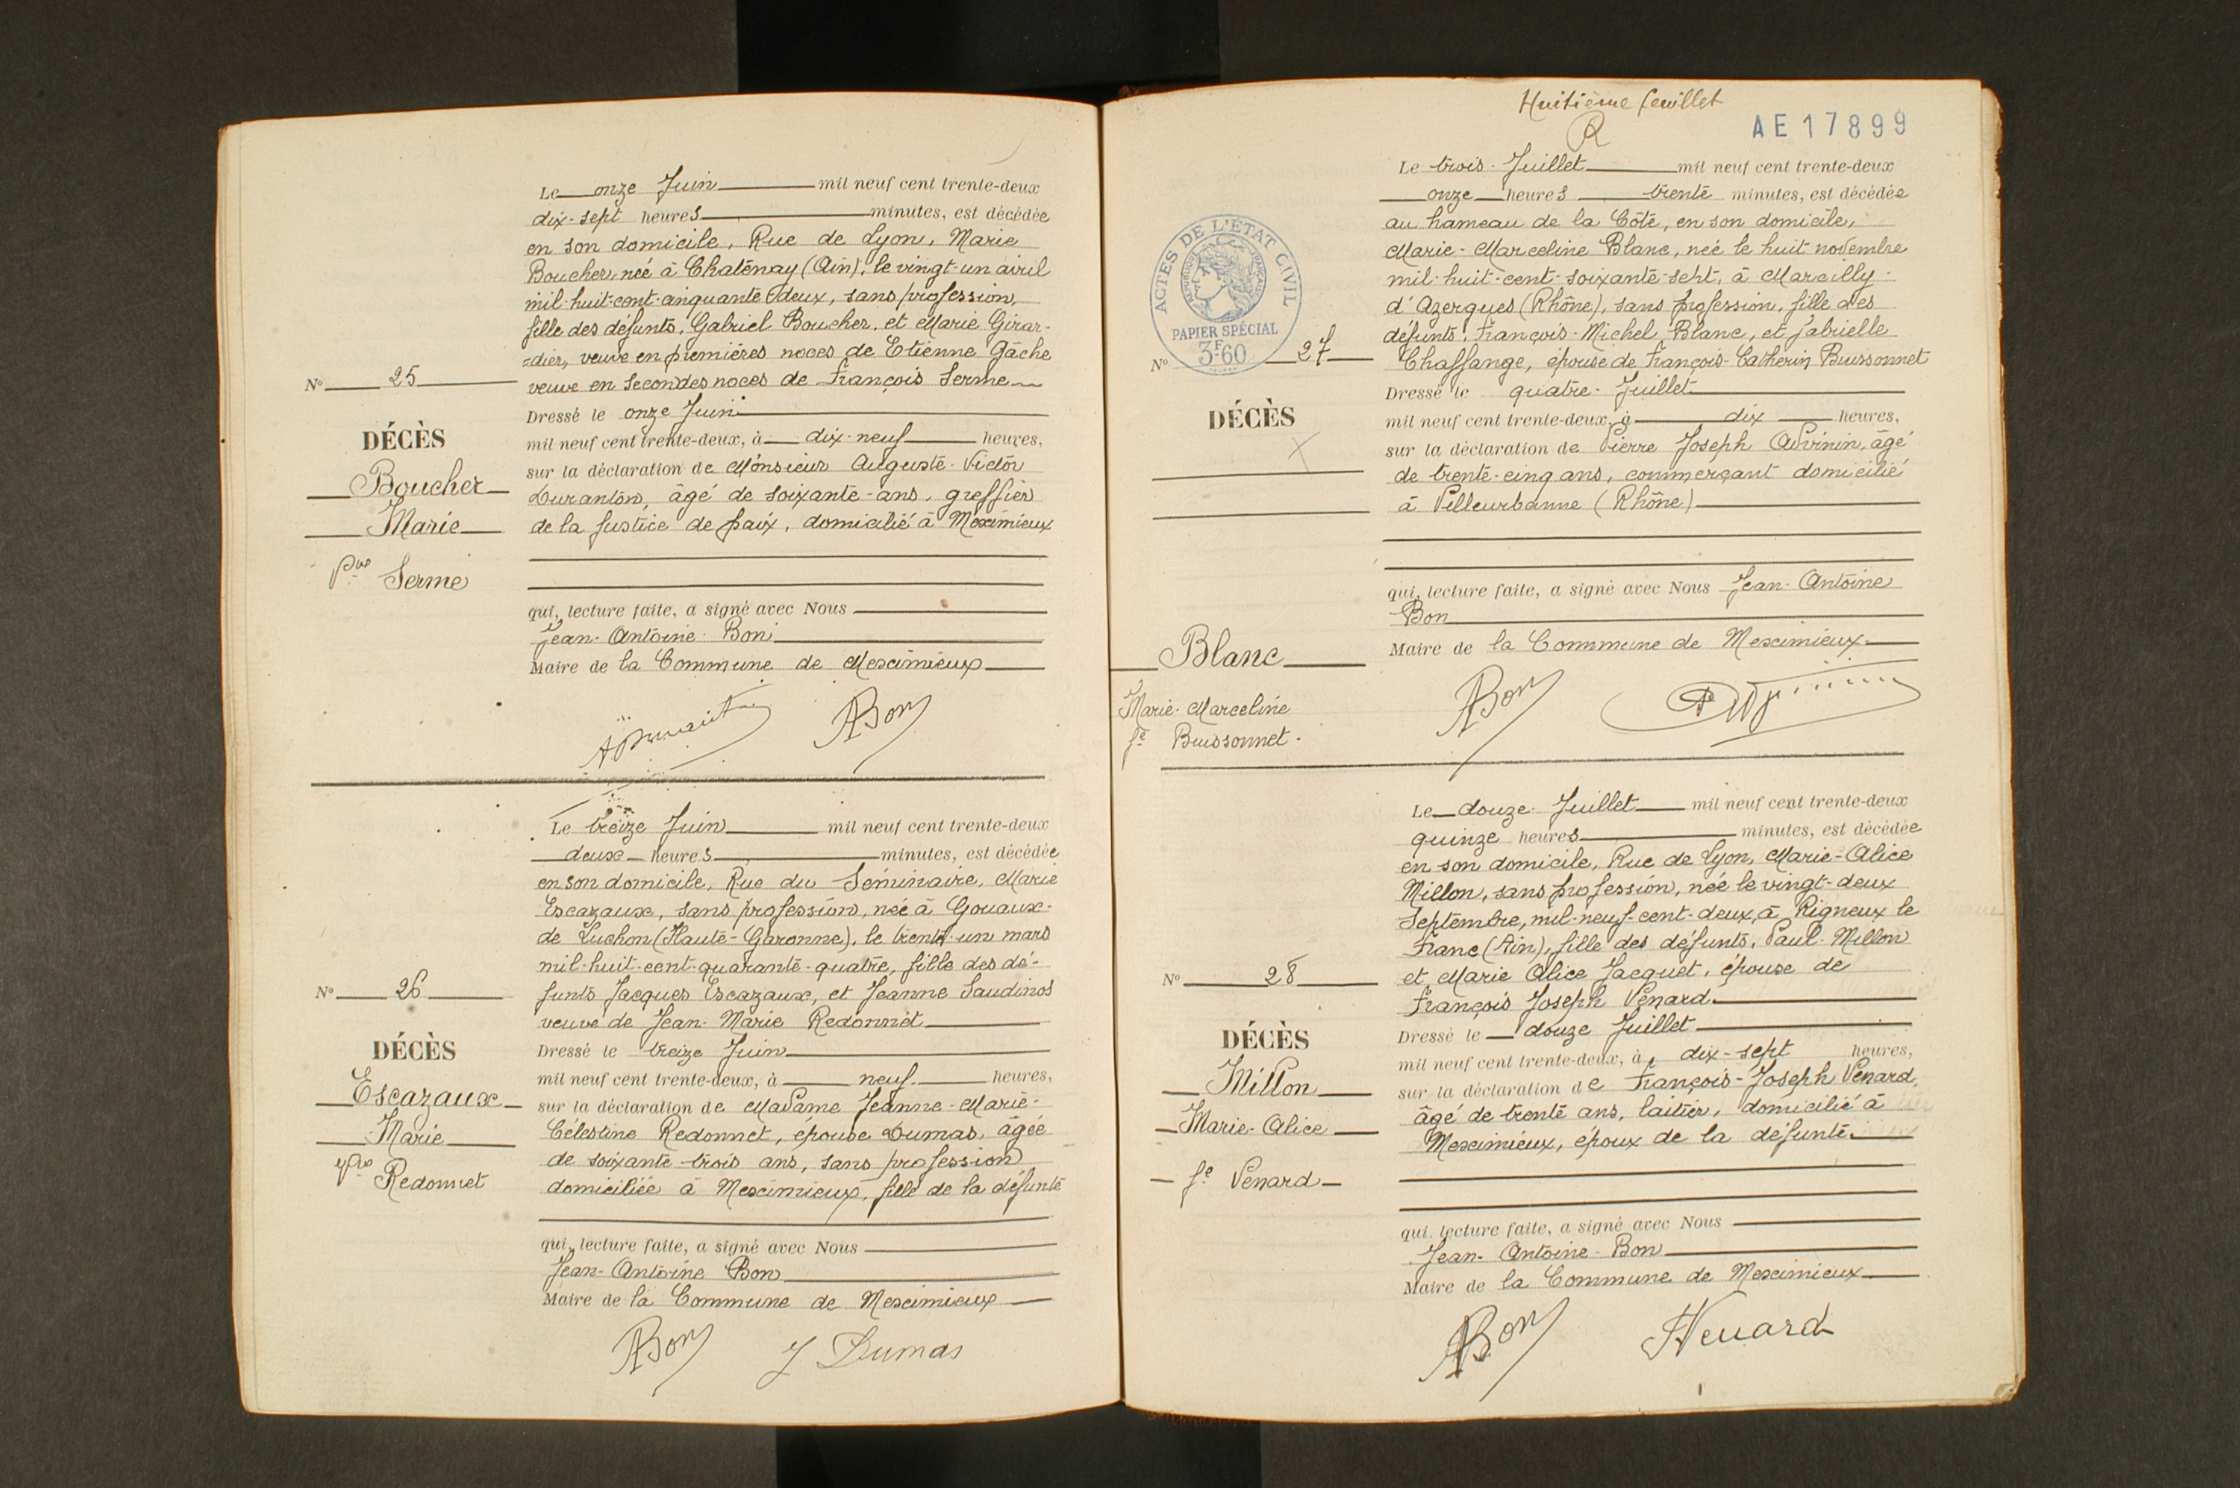 Le onze Juin mil neuf cent trente-deux
dix-sept heures minutes, est décédée
en son domicile, Rue de Lyon, Marie
Boucher, née à Chaténay (Ain), le vingt-un avril
mil-huit-cent-cinquante deux, sans profession,
fille des défunts, Gabriel Boucher, et Marie Girar-
-dier, veuve en premières noces de Etienne Gâche
veuve en secondes noces de François Serme
Dressé le onze Juin
mil neuf cent trente-deux, à dix-neuf heures,
sur la déclaration de Monsieur Auguste-Victor
Duranton, âgé de soixante-ans, greffier
de la Justice de paix, domicilié à Meximieux
qui, lecture faite, a signé avec Nous
Jean-Antoine Bon
Maire de la Commune de Meximieux
ABon
N° 25
DÉCÈS
Boucher
Marie
Vve Serme
Le treize Juin mil neuf cent trente-deux
deux heures minutes, est décédée
en son domicile, Rue du Séminaire, Marie
Escazaux, sans profession, née à Gouaux-
de Luchon (Haute-Garonne), le trente-un mars
mil-huit-cent-quarante-quatre, fille des dé-
funts Jacques Escazaux, et Jeanne Saudinos
veuve de Jean-Marie Redonnet
Dressé le treize Juin
mil neuf cent trente-deux, à neuf heures,
sur la déclaration de Madame Jeanne-Marie-
Célestine Redonnet, épouse Dumas, âgée
de soixante-trois ans, sans profession
domiciliée à Meximieux, fille de la défunte
qui, lecture faite, a signé avec Nous
Jean-Antoine Bon
Maire de la Commune de Meximieux
ABon J Dumas
N° 26
DÉCÈS
Escazaux
Marie
Vve Redonnet
Huitième feuillet
R
AE17899
Le trois Juillet mil neuf cent trente-deux
onze heures trente minutes, est décédée
au hameau de la Côte, en son domicile,
Marie-Marceline Blanc, née le huit novembre
mil-huit-cent-soixante-sept, à Marcilly-
d'Azergues (Rhône), sans profession, fille des
défunts, François-Michel Blanc, et Jabrielle
Chaffange, épouse de François-Catherin Buissonnet
Dressé le quatre Juillet
mil neuf cent trente-deux, à dix heures,
sur la déclaration de Pierre Joseph Advinin, âgé
de trente-cinq ans, commerçant domicilié
à Villeurbanne (Rhône)
qui, lecture faite, a signé avec Nous Jean-Antoine
Bon
Maire de la Commune de Meximieux
ABon
ACTES DE L'ÉTAT CIVIL
RÉPUBLIQUE FRANÇAISE
PAPIER SPÉCIAL
3F.60
N° 27
DÉCÈS
Blanc
Marie-Marceline
fe Buissonnet.
Le douze Juillet mil neuf cent trente-deux
quinze heures minutes, est décédée
en son domicile, Rue de Lyon, Marie-Alice
Millon, sans profession, née le vingt-deux
Septembre, mil-neuf-cent-deux, à Rigneux le
Franc (Ain), fille des défunts, Paul Millon
et Marie Alice Jacquet, épouse de
François Joseph Venard.
Dressé le douze Juillet
mil neuf cent trente-deux, à dix-sept heures,
sur la déclaration de François-Joseph Venard,
âgé de trente ans, laitier, domicilié à
Meximieux, époux de la défunte.
qui, lecture faite, a signé avec Nous
Jean-Antoine Bon
Maire de la Commune de Meximieux
ABon FVenard
N° 28
DÉCÈS
Millon
Marie-Alice
fe Venard